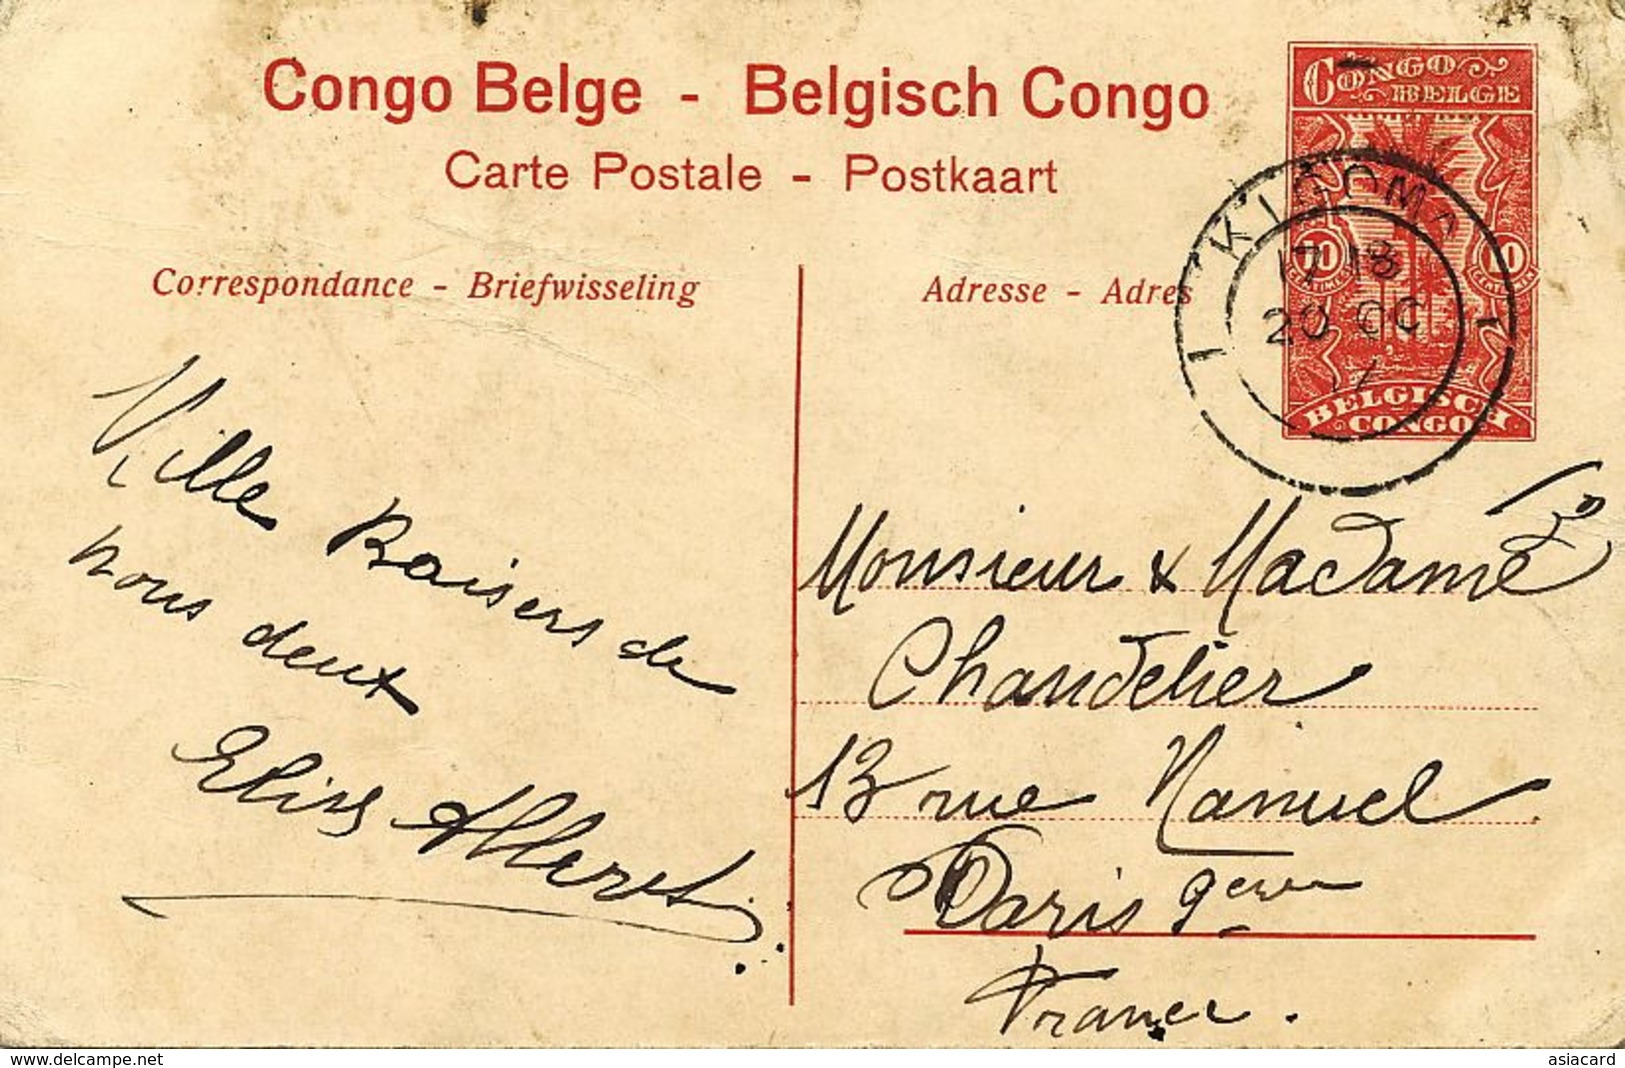 Congo Belge - Belgisch Congo
Carte Postale - Postkaart
CONGO
BELGE
KIGOMA
17 18
20 OC
10
10
BELGISCH
CONGO
Correspondance - Briefwisseling
Adresse - Adres
Mille Baisers de
nous deux
Monsieur & Madame
Chandelier
13 rue Manuel
Paris 9eme
France.
delcampe.net
asiacard